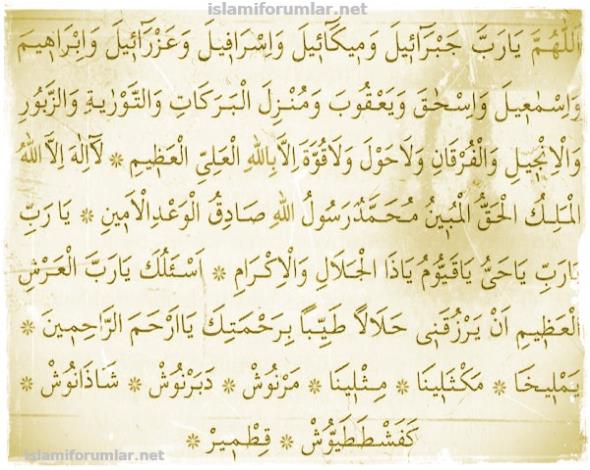 islamiforumlar.net
اَللّٰهُمَّ يَارَبَّ جَبْرَآئِيلَ وَمِيكَآئِيلَ وَاِسْرَافِيلَ وَعَزْرَآئِيلَ وَاِبْرَاهِيمَ
وَاِسْمٰعِيلَ وَاِسْحٰقَ وَيَعْقُوبَ وَمُنْزِلَ الْبَرَكَاتِ وَالتَّوْرٰيةِ وَالزَّبُورِ
وَالْاِنْجٖيلِ وَالْفُرْقَانِ وَلَاحَوْلَ وَلَاقُوَّةَ اِلاَّ بِاللهِ الْعَلِيِّ الْعَظٖيمِ ❋ لَآاِلٰهَ اِلاَّ اللهُ
الْمَلِكُ الْحَقُّ الْمُبٖينُ مُحَمَّدٌ رَسُولُ اللهِ صَادِقُ الْوَعْدِالْاَمٖينِ ❋ يَارَبِّ
يَارَبِّ يَاحَىُّ يَاقَيُّومُ يَاذَا الْجَلَالِ وَالْاِكْرَامِ ❋ اَسْئَلُكَ يَارَبَّ الْعَرْشِ
الْعَظٖيمِ اَنْ يَرْزُقَنٖى حَلَالاً طَيِّباً بِرَحْمَتِكَ يَااَرْحَمَ الرَّاحِمٖينَ ❋
يَمْلٖيخَا ❋ مَكْثَلٖينَا ❋ مِثْلٖينَا ❋ مَرْنُوشْ ❋ دَبَرْنُوشْ ❋ شَاذَانُوشْ ❋
كَفَشْطَطَيُّوشْ ❋ قِطْمٖيرْ ❋
islamiforumlar.net